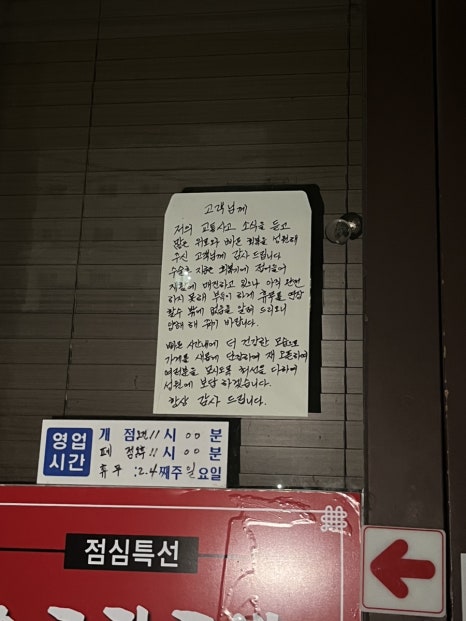 고객님께
저의 교통사고 소식을 듣고
많은 위로와 빠른 쾌유를 성원해
주신 고객님께 감사 드립니다
수술후 지금은 회복기에 접어들어
치료에 매진하고 있으나 아직 완전
하지 못해 부득이 하게 휴무를 연장
할수 밖에 없음을 알려 드리오니
양해 해 주기 바랍니다.
빠른 시간내에 더 건강한 모습으로
가게를 새롭게 단장하여 재 오픈하여
여러분을 모시도록 최선을 다하여
성원에 보답 하겠습니다.
항상 감사 드립니다.
영업시간
개 점 11시 00분
폐 점 11시 00분
휴 무 : 2.4째주 일요일
점심특선